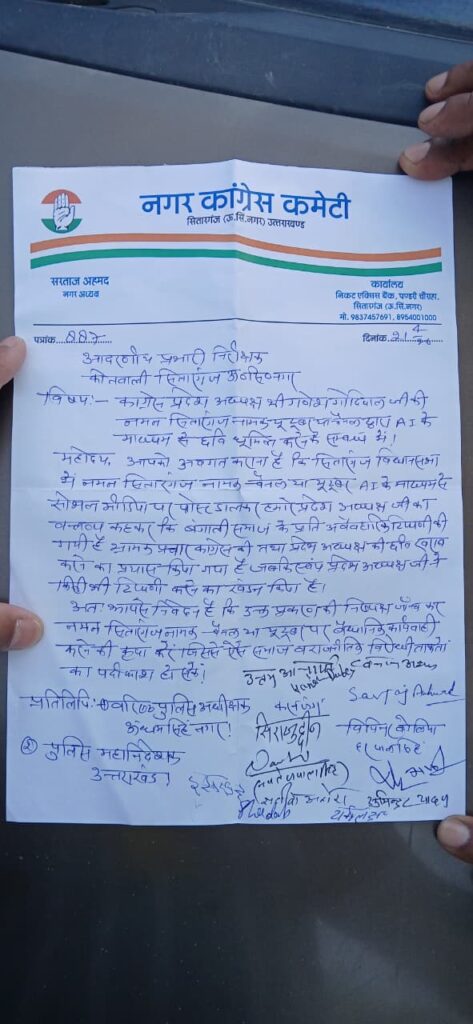 नगर कांग्रेस कमेटी
सितारगंज (ऊ.सि.नगर) उत्तराखण्ड
सरताज अहमद
नगर अध्यक्ष
कार्यालय
निकट एक्सिस बैंक, पण्डरी चौराहा,
सितारगंज (ऊ.सि.नगर)
मो. 9837457691, 8954001000
पत्रांक
दिनांक 21 4
आदरणीय प्रभारी निरीक्षक
कोतवाली सितारगंज
विषय:- कांग्रेस प्रदेश अध्यक्ष श्री गणेश गोदियाल जी की
नमन सितारगंज नामक यूट्यूब चैनल द्वारा AI के
माध्यम से छवि धूमिल करने के सम्बन्ध में।
महोदय, आपको अवगत कराना है कि सितारगंज विधानसभा
में नमन सितारगंज नामक चैनल या यूट्यूबर AI के माध्यम से
सोशल मीडिया पर पोस्ट डालकर हमारे प्रदेश अध्यक्ष जी का
वक्तव्य कहकर कि बंगाली समाज के प्रति टिप्पणी की
गयी है भ्रामक प्रचार कांग्रेस की तथा प्रदेश अध्यक्ष की छवि खराब
करने का प्रयास किया गया है जबकि स्वयं प्रदेश अध्यक्ष जी ने
किसी भी टिप्पणी करने का खंडन किया है।
अतः आपसे निवेदन है कि उक्त प्रकरण की निष्पक्ष जाँच कर
नमन सितारगंज नामक चैनल या यूट्यूब पर वैधानिक कार्यवाही
करने की कृपा करें जिससे ऐसे समाज व राजनीतिक विरोधी ताकतों
का पर्दाफाश हो सके।
प्रतिलिपि:- ① वरिष्ठ पुलिस अधीक्षक
ऊधम सिंह नगर।
② पुलिस महानिदेशक
उत्तराखण्ड।
उत्तम आचार्य
Sartaj Ahmad
सिराजुद्दीन